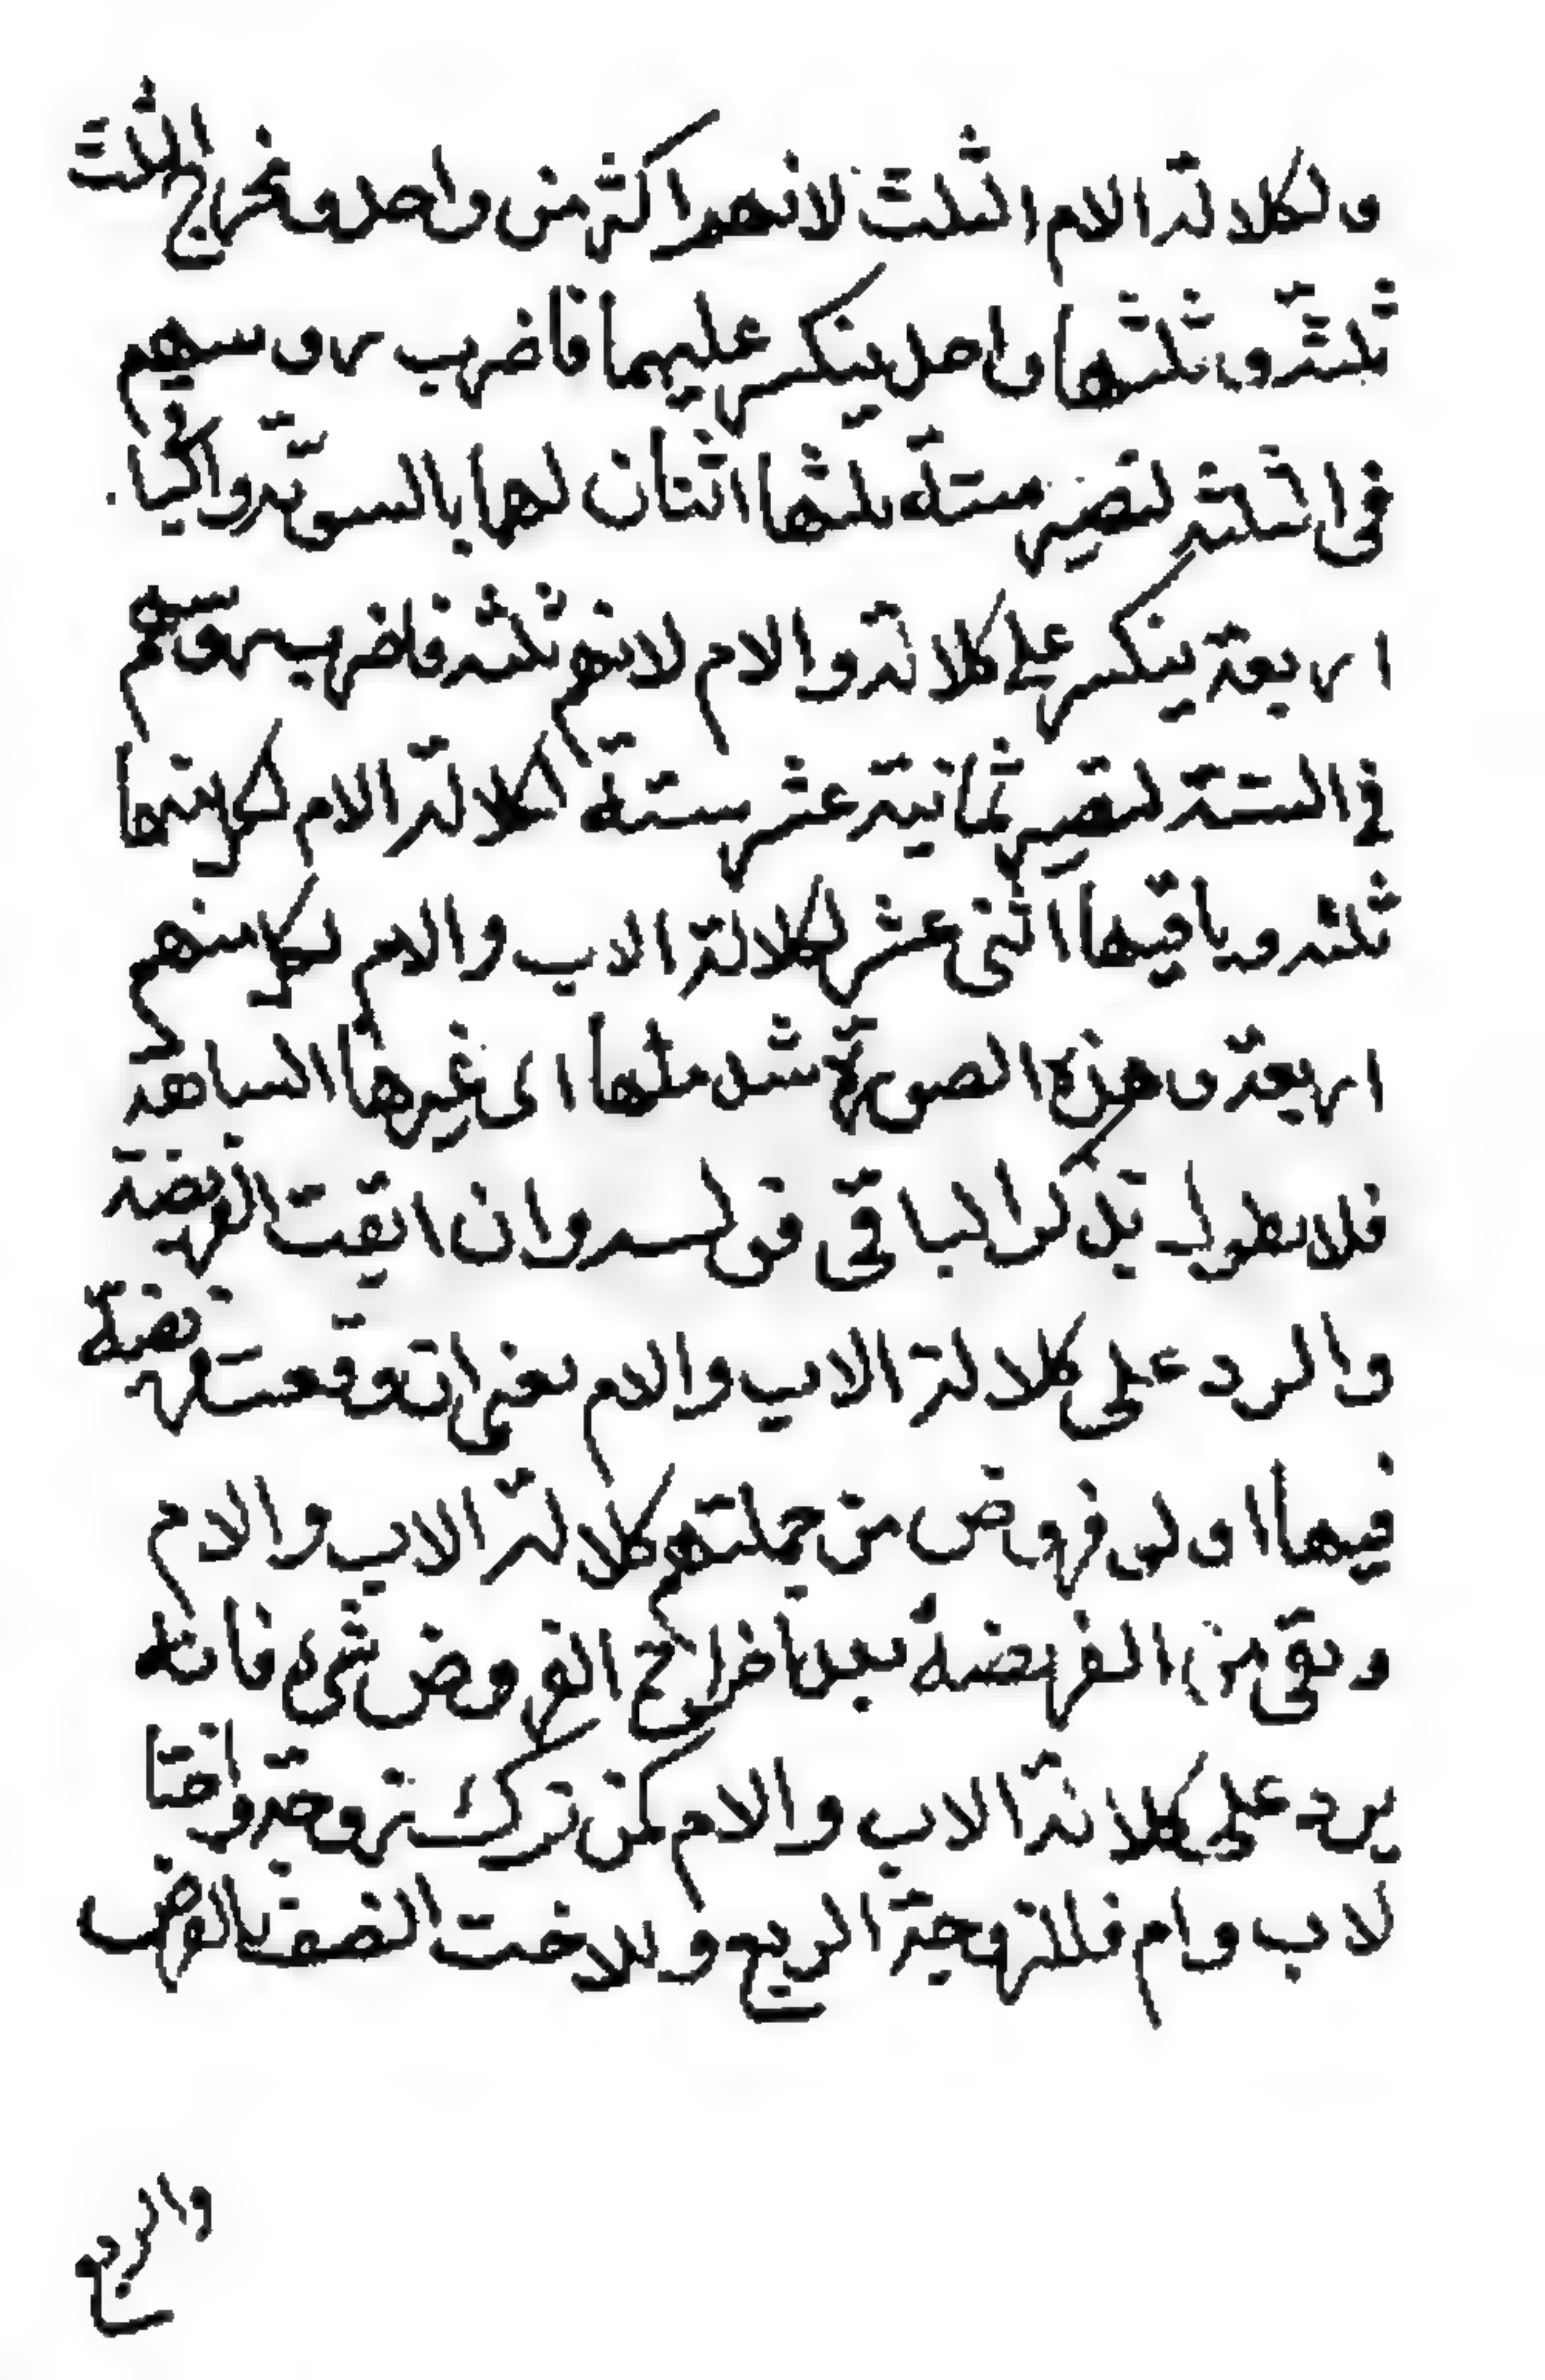 ولكلالة الام الثلث لانهم اكثر من واحد ومخرج الثلث
ثلثة وثلثها واحد ينكسر عليهما فاضرب روسهم
في الثلثة تصير ستة ثلثها اثنان لها بالسوية والباقي
اربعة ينكسر على كلالة والام لانهم ثلثة فاضرب روسهم
في الستة تصير ثمانية عشر ستة لكلالة الام لكل منهما
ثلثة وباقيها اثنى عشر لكلالة الاب والام لكل منهم
اربعة و هذه الصورة ترشد مثلها الى غيرها السابقة
فلا نطول بذكر الباقي قوله وان ابقت الفريضة
والرد على كلالة الاب والام يعنى ان وقعت فريضة
فيها اولى فروض من جملتهم كلالة الاب والام
وبقى من الفريضة بعد اخراج الفروض شىء فانه
يرد على كلالة الاب والام كمن ترك زوجة واختا
لاب وام فللزوجة الربع وللاخت النصف بالفرض
والربع